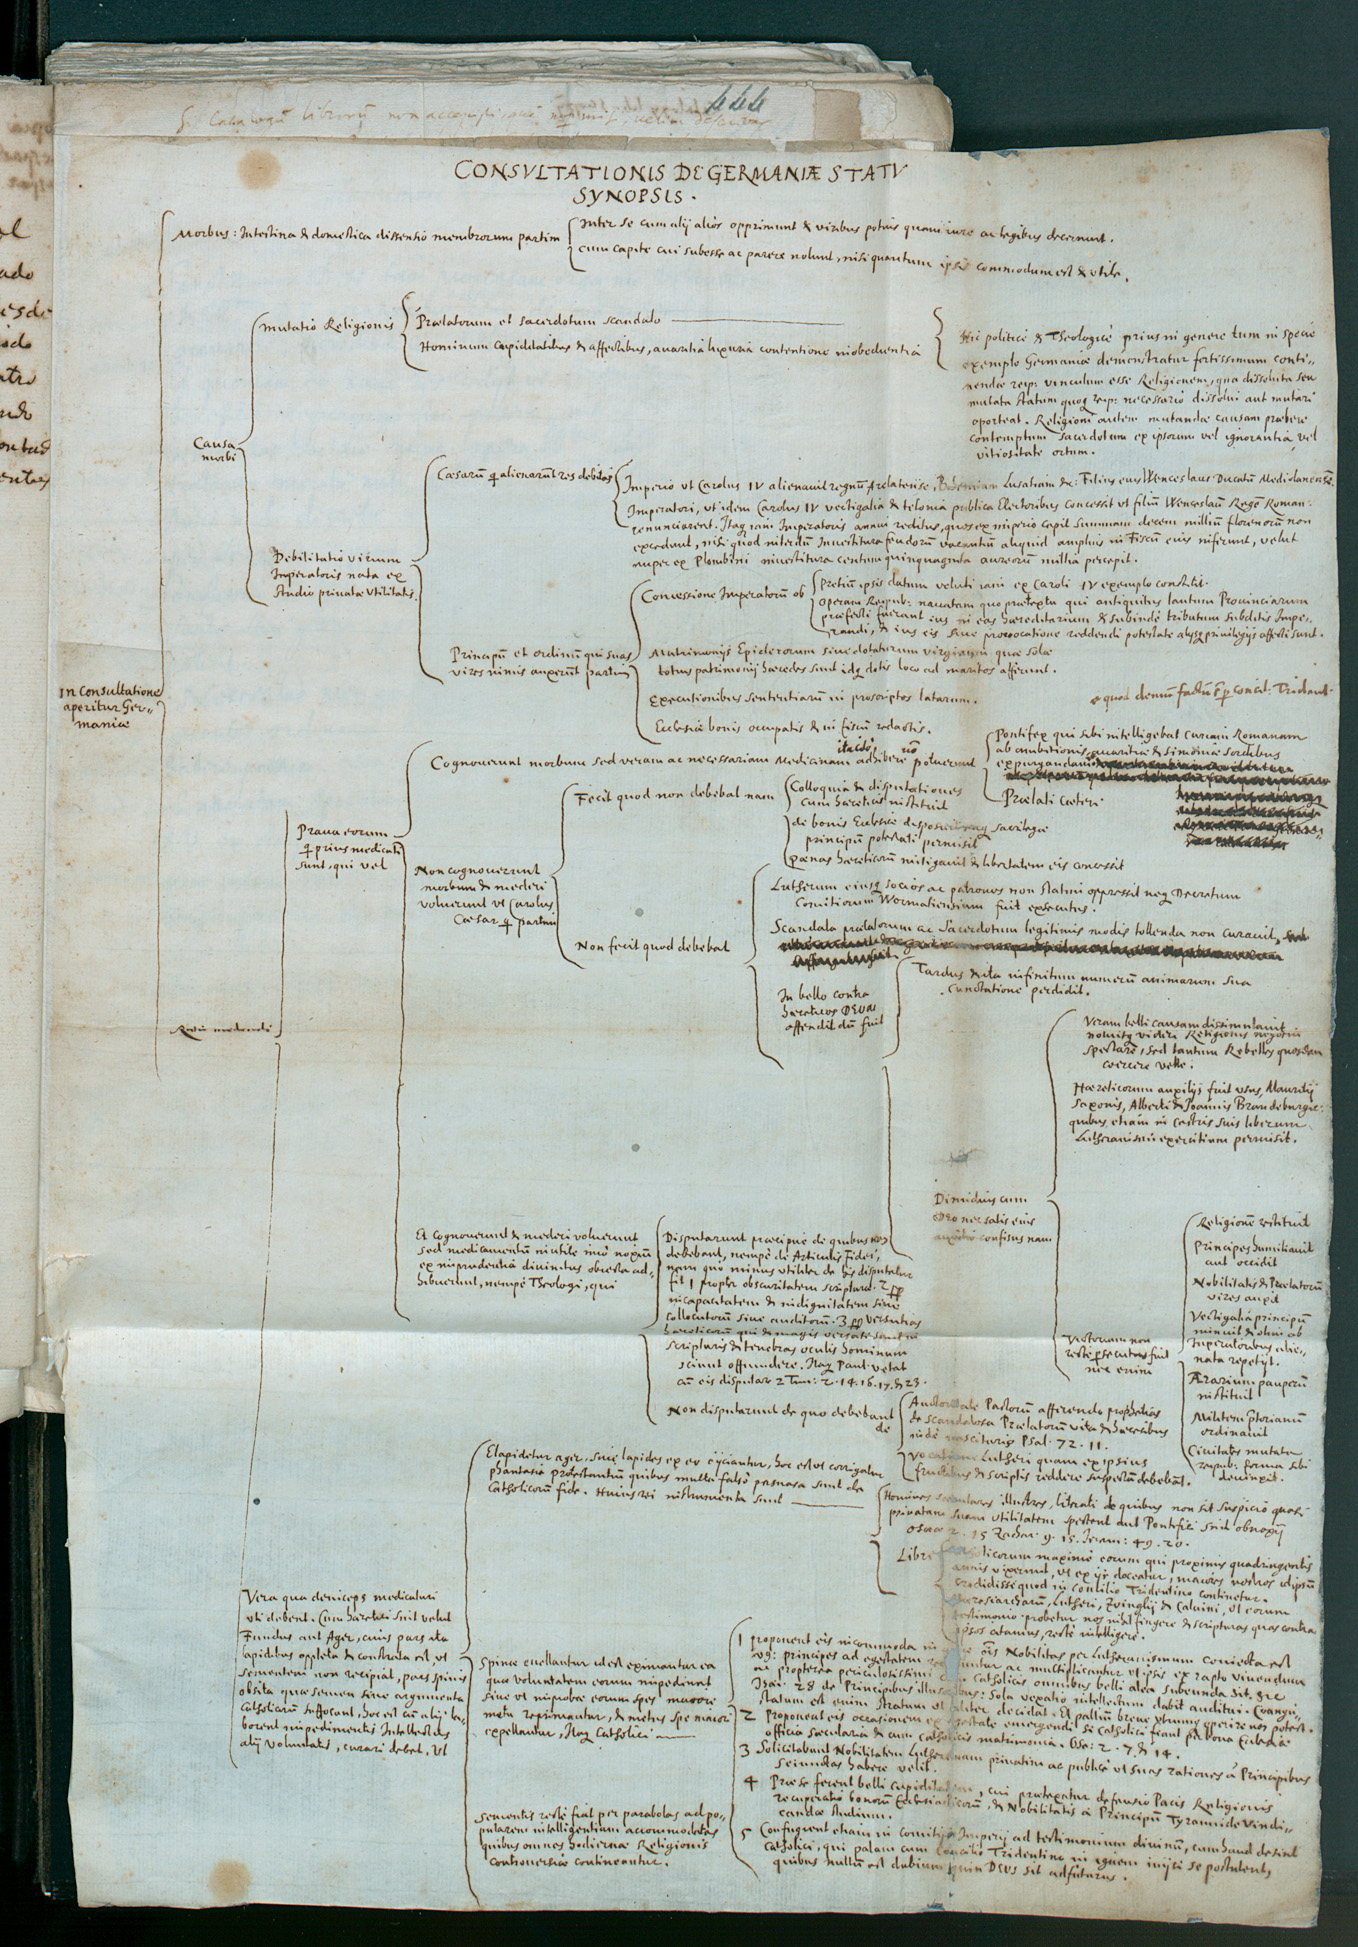 444
CONSVLTATIONIS DE GERMANIÆ STATV
SYNOPSIS.
Morbus: Intestina & domestica dissensio membrorum partim
Inter se cum alij alios opprimunt & viribus potius quam iure ac legibus decernunt.
cum capite cui subesse ac parere nolunt, nisi quantum ipsis commodum est & utile.
Causa
morbi
Mutatio Religionis
Prælatorum et sacerdotum scandalo
Hominum cupiditatibus & affectibus, avaritia luxuria contentione inobedientia
Hic politicè & Theologicè prius in genere tum in specie
exemplo Germaniæ demonstratur fortissimum conti-
nendæ reip: vinculum esse Religionem, qua dissoluta seu
mutata statum quoq reip: necessario dissolui aut mutari
oporteat. Religioni autem mutandæ causam præbere
contemptum sacerdotum ex ipsorum vel ignorantia vel
vitiositate ortum.
Debilitatio virium
Imperatoris nata ex
studio privatæ utilitatis.
Cæsarū q alienarūt res debitas
Imperio ut Carolus IV alienavit regnum Arelatense, Lusatiam &c: Filius eius Wenceslaus Ducatū Mediolanensē.
Imperatori, ut idem Carolus IV vectigalia & telonia publica Electoribus concessit ut filiū Wenceslaū Regē Roman:
renunciarent. Itaq iam Imperatoris annui reditus, quos ex imperio capit summam decem milliū florenorū non
excedunt, nisi quod interdū Investitura feudorū vacantiū aliquid amplius in Fiscū eius inferunt, velut
nuper ex Plombini investitura centum quinquaginta aureorū millia percepit.
Principū et ordinū qui suas
vires nimis auxerūt partim
Concessione Imperatorū ob
pretiū ipsis datum veluti iam ex Caroli IV exemplo constitit.
operam Reipub: navatam quo prætextu qui antiquitus tantum Provinciarum
præfecti fuerant ius in eas hæreditarium & subinde tributum subditis impe-
randi, & ius eis sine provocatione reddendi potestate alijsq privilegijs affecti sunt.
Matrimonijs Epiclerorum sive dotatarum virginum quæ solæ
totius patrimonij hæredes sunt idq dotis loco ad maritos afferunt.
Executionibus sententiarū in proscriptos latarum.
Ecclesiæ bonis occupatis & in fiscū redactis.
In Consultatione
aperitur Ger-
maniæ
quod demum factū ē p concil: Trident.
Cognoverunt morbum sed veram ac necessariam Medicinam adhibere potuerunt
Pontifex qui sibi intelligebat Curiam Romanam
ab ambitionis avaritiæ & simoniæ sordibus
expurgandam
Prælati cæteri
Prava eorum
q prius medicati
sunt, qui vel
Non cognoverunt
morbum & mederi
voluerunt ut Carolus
Cæsar q partim
Fecit quod non debebat nam
Colloquia & disputationes
cum hæreticis instituit
de bonis Ecclesiæ disponendi sacrilegæ
principū potestati permisit
pœnas hæreticorū mitigavit & libertatem eis concessit
Non fecit quod debebat
Lutherum eiusq socios ac patronos non statim oppressit neq Decretum
Comitiorum Wormatiensium fuit executus.
Scandala prælatorum ac Sacerdotum legitimis modis tollenda non curavit,
In bello contra
hæreticos DEUM
offendit dū fuit
Tardus & ita infinitum numerū animarum sua
cunctatione perdidit.
Ratio medendi
Dimidius cum
Deo nec satis eius
auxilio confisus nam
Veram belli causam dissimulavit
noluitq videri Religionis negotiū
spectare, sed tantum Rebelles quosdam
coercere velle.
Hæreticorum auxilijs fuit usus, Mauritij
Saxonis, Alberti & Joannis Brandeburgic:
quibus etiam in castris suis liberum
Lutheranismi exercitium permisit.
Victoriam non
recte persecutus fuit
nec enim
Religionē restituit
Principes humiliavit
aut occidit
Nobilitatis & Prælatorū
vires auxit
Vectigalia principū
minuit & olim ab
Imperatoribus alie-
nata repetijt.
Ærarium pauperū
instituit
Militem Prætorianū
ordinavit
Civitates mutata
reipub: forma sibi
devinxit.
Et cognoverunt & mederi voluerunt
sed medicamentū inutile imò noxiū
ex imprudentia divinitus obiecta ad-
hibuerunt, nempè Theologi, qui
Disputarunt præcipuè de quibus non
debebant, nempè de Articulis Fidei,
nam quò minus utiliter de his disputetur
fit 1 propter obscuritatem scripturæ. 2 pp
incapacitatem & indignitatem sive
collocutorū sive auditorū. 3 pp versutias
hæreticorū qui & magis versati sunt in
scripturis & tenebras oculis hominum
sciunt offundere. Itaq Paul. vetat
cū eis disputare 2 Tim: 2. 14. 16. 17. & 23.
Non disputarunt de quo debebant
de
Auctoritate Pastorū afferendo prophetias
de scandalosa Prælatorū vita & hæresibus
inde nascituris Psal. 72. 11.
Vocatione Lutheri quam ex ipsius
fructibus & scriptis reddere suspectū debebāt.
Vera qua deinceps medicari
uti debent. Cum hæretici sint velut
Fundus aut Ager, cuius pars ita
lapidibus oppleta & constrata est ut
sementem non recipiat, pars spinis
obsita quæ semen sive argumenta
catholicorū suffocant, hoc est cū alij la-
borent impedimentis Intellectus
alij voluntatis, curari debet, ut
Elapidetur ager, sive lapides ex eo eijciantur, hoc est ut corrigatur
phantasia protestantiū quibus multa falsò persuasa sunt de
Catholicorū fide. Huius rei instrumenta sunt
Homines seculares illustres, literati de quibus non sit suspicio quasi
privatam suam utilitatem spectent aut Pontifici sint obnoxij
Oseæ 2. 15 Zachar. 9. 15. Jerem: 49. 20.
Libri
maximè eorum qui proximis quadringentis
annis vixerunt, ut ex ijs doceatur, maiores nostros idipsū
credidisse quod in concilio Tridentino continetur.
Hæresiarcharū, Lutheri, Zvinglij & Calvini, ut eorum
testimonio probetur nos nihil fingere & scripturas quas contra
ipsos citamus, rectè intelligere.
Spinæ evellantur id est eximantur ea
quæ voluntatem eorum impediunt
sive ut improbæ eorum spes maiore
metu reprimantur, & metus spe maiori
expellantur, Itaq Catholici
1 proponent eis incommoda in quæ ois Nobilitas per Lutheranismum coniecta est
vg: principes ad egestatem ac multiplicantur ut ipsis ex rapto vivendum
ac propterea periculosissimi Catholicis omnibus belli alea subeunda sit. &c
Isai. 28 de Principibus illusoribus: Sola vexatio intellectum dabit auditui. Coangu-
statum est enim stratum ut alter decidat. Et pallium breve utrumq operire non potest.
2 Proponent eis occasionem ex egestate emergendi si catholici fiant per bona Ecclesiæ
officia sæcularia & cum catholicis matrimonia. Ose: 2. 7. & 14.
3 Solicitabunt Nobilitatem Lutheranam privatim ac publicè ut suas rationes à Principibus
seiunctas habere velit.
4 Præ se ferent belli cupiditatem, cui prætexatur defensio Pacis Religionis
recuperatio bonorū Ecclesiasticorū, & Nobilitatis à Principū Tyrannide vindi-
candæ studium.
5 Confugient etiam in comitijs Imperij ad testimonium divinū, cum haud desint
catholici, qui palam cum Concilio Tridentino in ignem inijci se postulent,
quibus nullū est dubium quin DEUS sit adfuturus.
Sementis rectè fiat per parabolas ad po-
pularem intelligentiam accommodatas
quibus omnes hodiernæ Religionis
controversiæ contineantur.